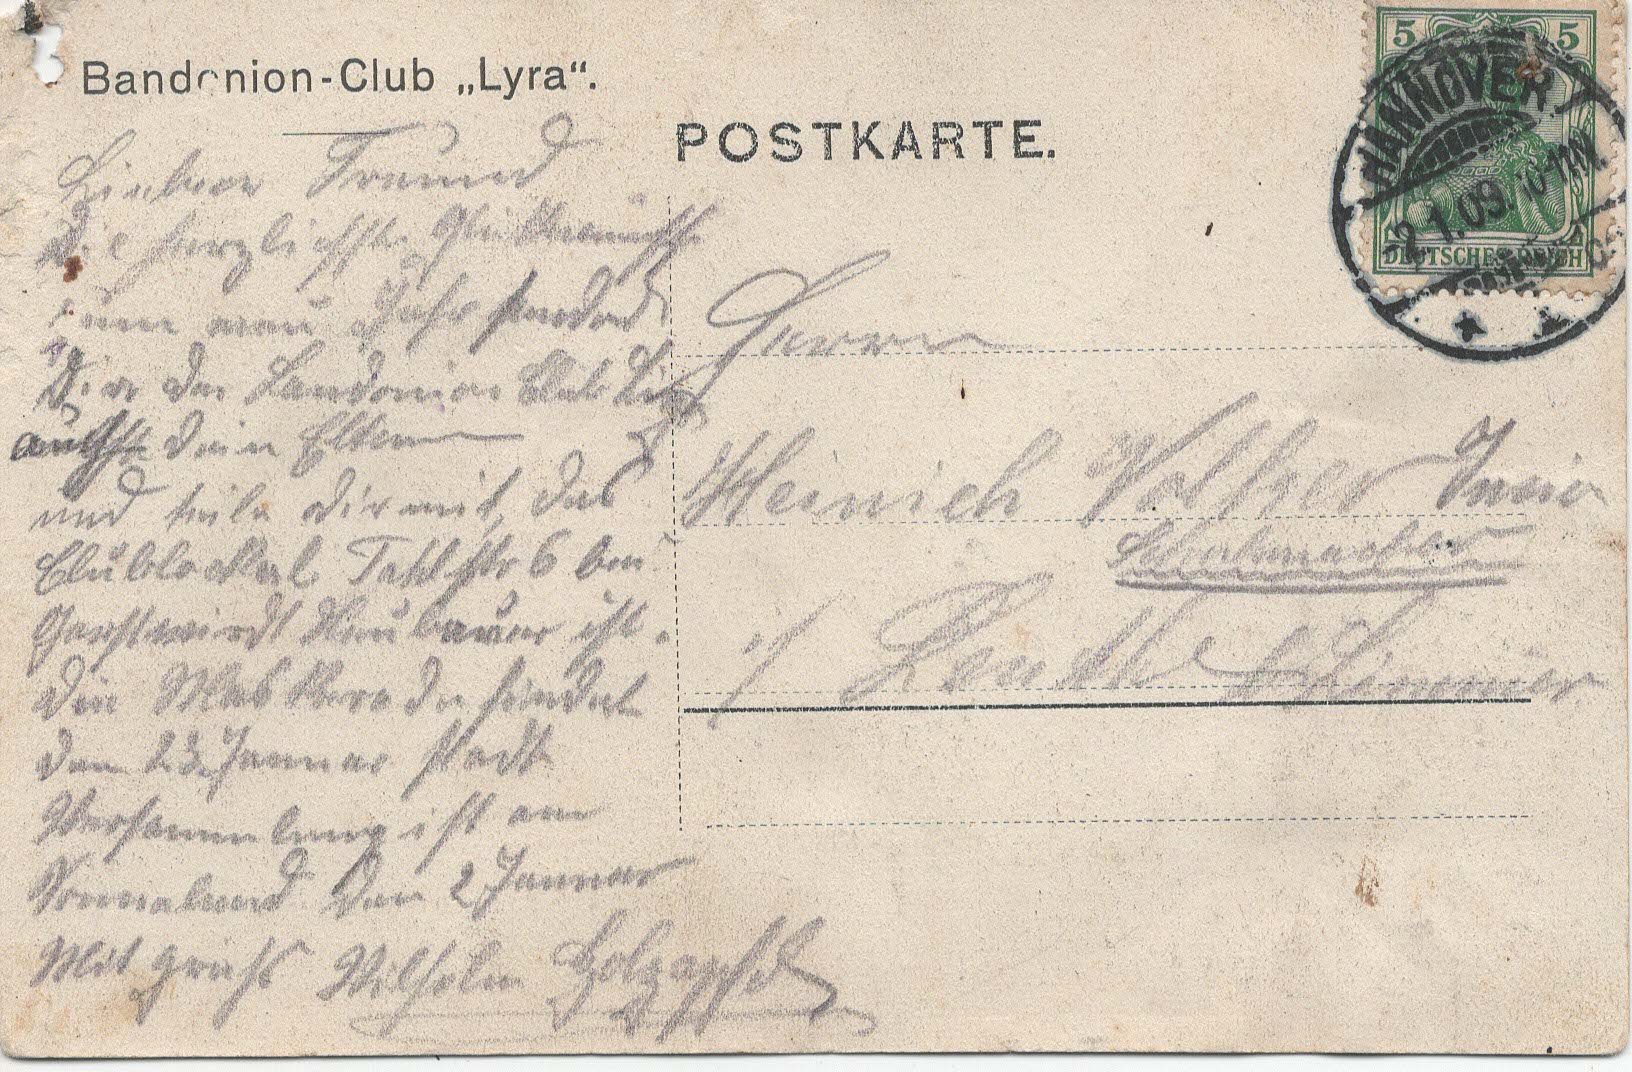 Bandonion-Club „Lyra“.
POSTKARTE.
5 5
HANNOVER 1
2.1.09. 10-11N.
DEUTSCHES REICH
Lieber Freund
Die herzlichste Glückwünsche
zum neuen Jahr sendet
Dir der Bandonion Club
deine Eltern
und teile dir mit, das
Clublockal 6 bei
Gastwirdt Neubauer ist.
Die Maskerade findet
den 23. Januar stadt
Versammlung ist am
Sonnabend den 2 Januar
Mit gruß Wilhelm Holzapfel
Herrn
Heinich Volkzer Junior
Schuhmacher
Lenthe b Limmer